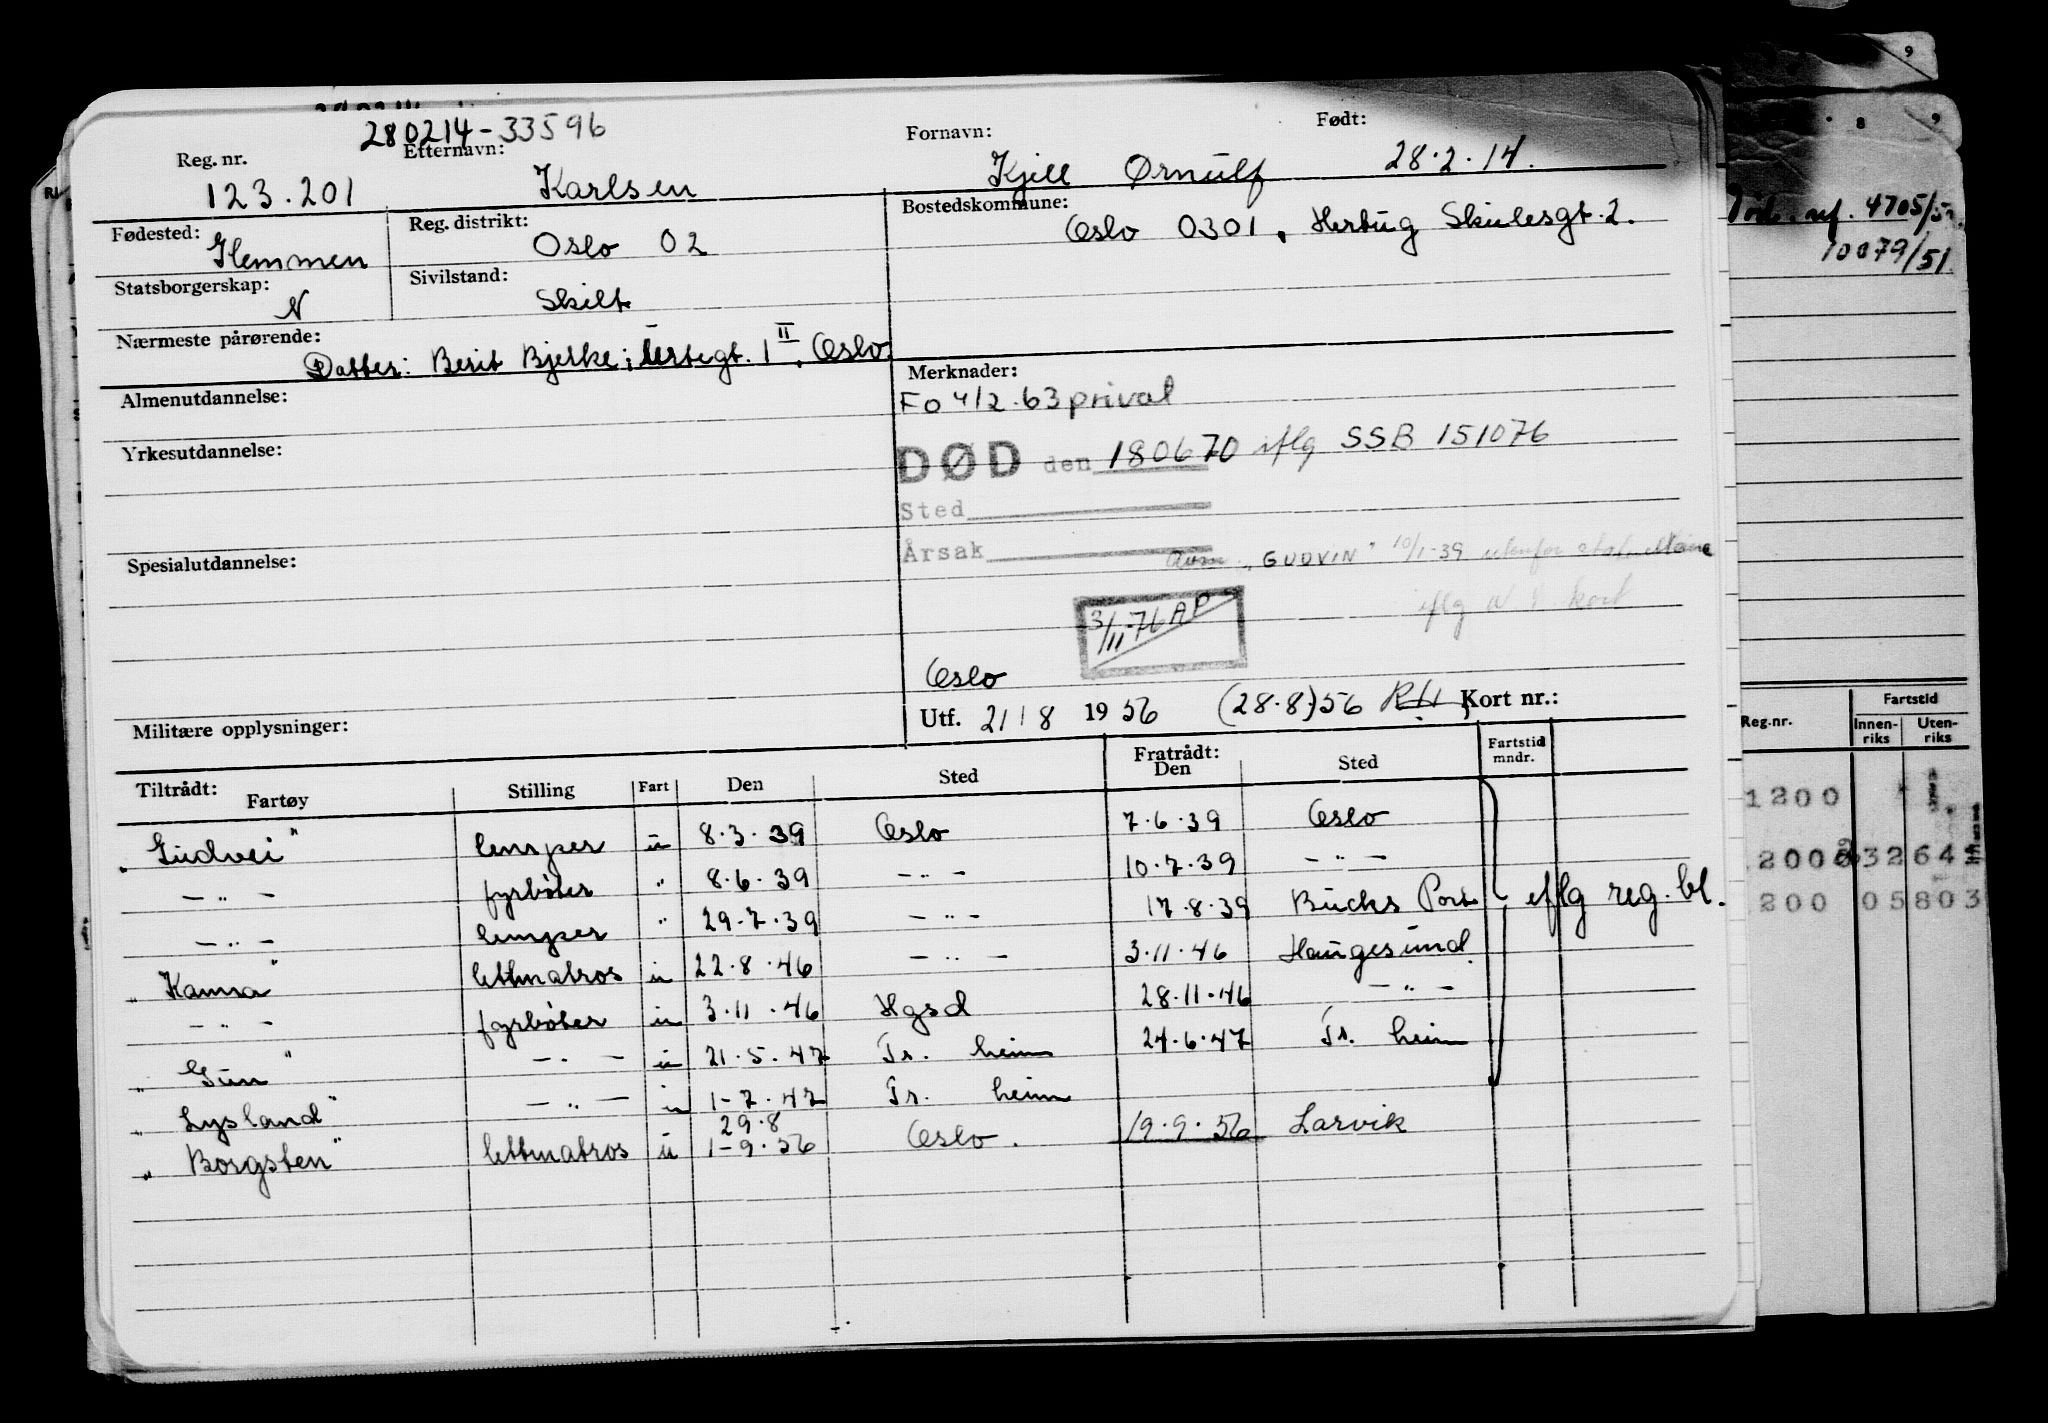 280214-33596
Reg. nr. Etternavn: Fornavn: Født:
123.201 Karlsen Kjell Ørnulf 28.2.14.
Fødested: Reg. distrikt: Bostedskommune:
Glemmen Oslo 02 Oslo 0301, Hertug Skulesgt. 2.
Statsborgerskap: Sivilstand:
N Skilt
Nærmeste pårørende:
Datter: Berit Bjelke; gt. 1 II, Oslo
Almenutdannelse: Merknader:
Fo 4/2.63 privat
Yrkesutdannelse:
DØD den 180670 iflg SSB 151076
Sted
Årsak
"GUDVIN" 10/1-39
Spesialutdannelse:
iflg kort
3/11-76 AP
Oslo
Militære opplysninger: Utf. 21/8 1956 (28.8.)56 Kort nr.:
Tiltrådt: Fartøy Stilling Fart Den Sted Fratrådt: Den Sted Fartstid mndr.
"Gudvei" lemper u 8.3.39 Oslo 7.6.39 Oslo
— " — fyrbøter " 8.6.39 — " — 10.7.39 — " —
— " — lemper " 29.7.39 — " — 17.8.39 Bucks Port iflg reg. bl.
"Kamsa" lettmatros u 22.8.46 — " — 3.11.46 Haugesund
— " — fyrbøter u 3.11.46 Hgsd 28.11.46 — " —
"Gun" — " — u 21.5.47 Tr. heim 24.6.47 Tr. heim
"Lysland" — " — u 1-7.47 Tr. heim
29.8
"Borgsten" lettmatros u 1-9.56 Oslo. 19.9.56 Larvik
9
8 9
nf. 4705/5
10079/51
Reg.nr. Fartstid
Innen-riks Uten-riks
1200
200 32 64
200 05803